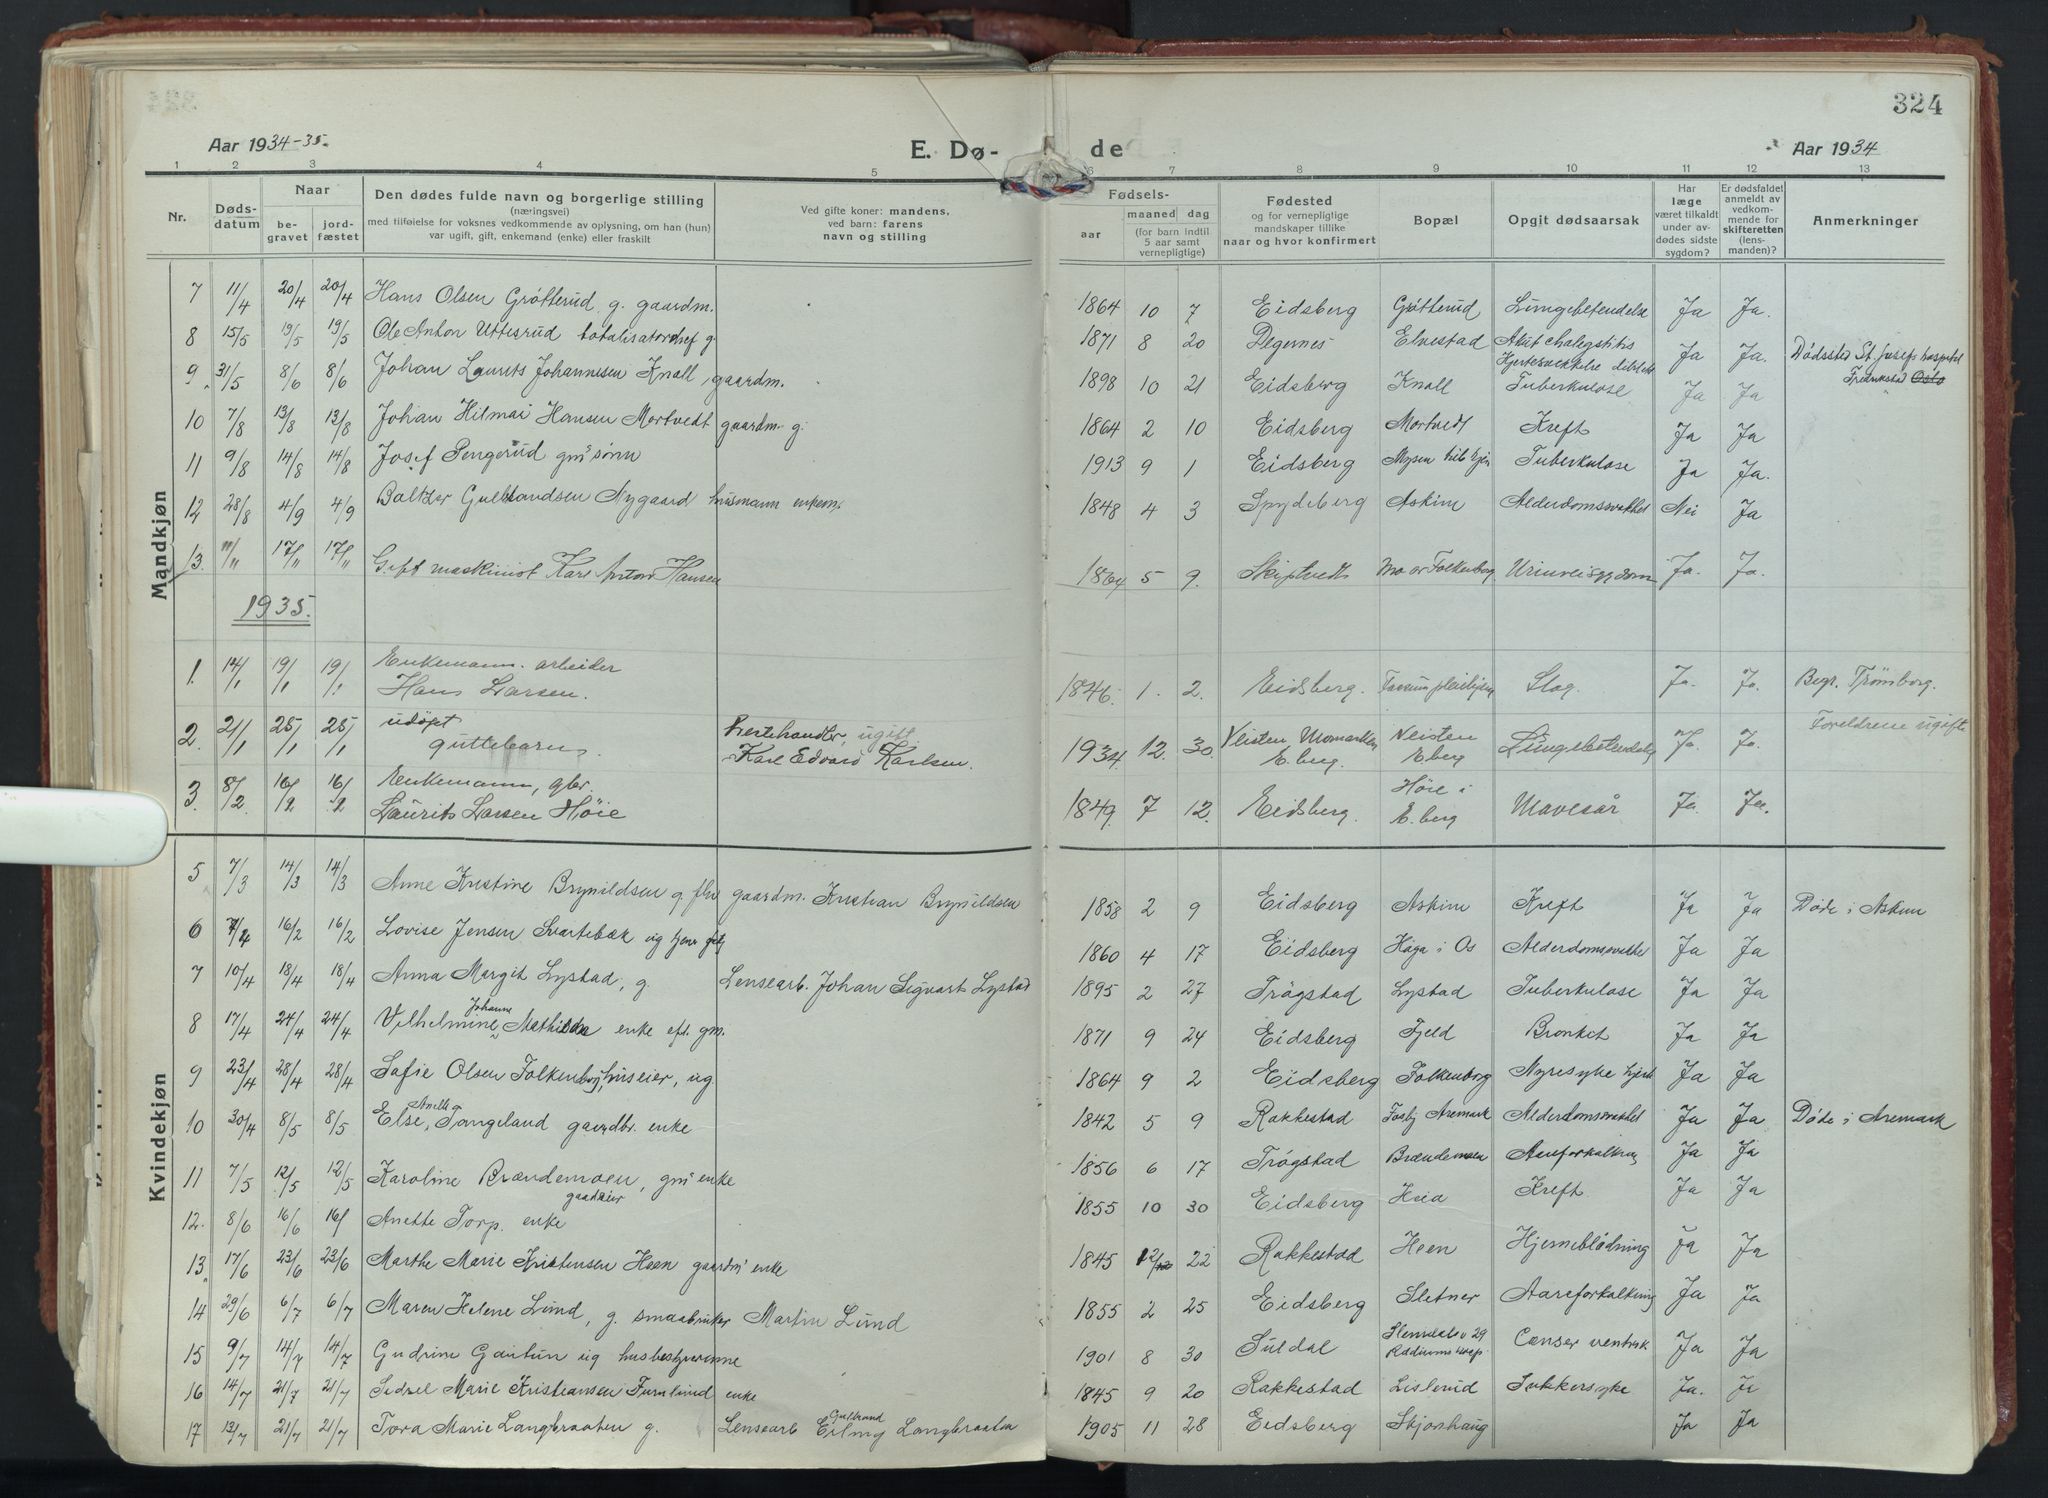 324
Aar 1934-35.
E. Dø-
de
Aar 1934
1 2 3 4 5 6 7 8 9 10 11 12 13
Nr.
Døds-
datum
Naar
be-
gravet
jord-
fæstet
Den dødes fulde navn og borgerlige stilling
(næringsvei)
med tilføielse for voksnes vedkommende av oplysning, om han (hun)
var ugift, gift, enkemand (enke) eller fraskilt
Ved gifte koner: mandens,
ved barn: farens
navn og stilling
Fødsels-
aar
maaned
dag
(for barn indtil
5 aar samt
vernepligtige)
Fødested
og for vernepligtige
mandskaper tillike
naar og hvor konfirmert
Bopæl
Opgit dødsaarsak
Har
læge
været tilkaldt
under av-
dødes sidste
sygdom?
Er dødsfaldet
anmeldt av
vedkom-
mende for
skifteretten
(lens-
manden)?
Anmerkninger
Mandkjøn
7 11/4 20/4 20/4 Hans Olsen Grøtterud g. gaardm. 1864 10 7 Eidsberg Grøtterud Lungebetendelse Ja Ja.
8 15/5 19/5 19/5 Ole Anton Uttesrud totalisatorchef g. 1871 8 20 Degernes Elvestad Akut Ja Ja. Dødssted St. Josefs hospital
Fredrikstad Oslo
9 31/5 8/6 8/6 Johan Laurits Johannesen Knoll, gaardm. 1898 10 21 Eidsberg Knoll Tuberkulose Ja Ja
10 7/8 13/8 13/8 Johan Hilmar Hansen Mortvedt gaardm. g. 1864 2 10 Eidsberg Mortvedt Kreft Ja Ja
11 9/8 14/8 14/8 Josef Pengerud gm's sønn 1913 9 1 Eidsberg Mysen Tuberkulose Ja Ja.
12 28/8 4/9 4/9 Baltzer Gulbrandsen Nygaard husmann enkem. 1848 4 3 Spydeberg Askim Alderdomssvakhet Nei Ja
13. 11/11 17/11 17/11 Gift maskinist Karl Anton Hansen 1864 5 9. Skiptvedt Mo av Folkenborg Urinveissygdom Ja. Ja.
1935.
1. 14/1 19/1 19/1 Enkemann. arbeider
Hans Larsen. 1846. 1. 2. Eidsberg. Slag. Ja. Ja. Begr. Trømborg.
2. 21/1 25/1 25/1 udøpt
guttebarn. hestehandler, ugift
Karl Edvard Karlsen. 1934. 12. 30. Veisten Momarken
E.berg. Veisten
E.berg Lungebetendelse Ja. Ja. Foreldrene ugifte
3. 8/2. 16/2 16/2 Enkemann, gbr.
Laurits Larsen Høie 1849. 7 12. Eidsberg. Høie i
E.berg Mavesår Ja. Ja.
Kvindekjøn
5 7/3 14/3 14/3 Anne Kristine Brynildsen g. gaardm. Kristian Brynildsen 1858 2 9 Eidsberg Askim Kreft Ja Ja Døde i Askim
6 16/2 16/2 Lovise Jensen Svartebæk ug 1860 4 17 Eidsberg Haga i Os Alderdomssvakhet Ja Ja
7 10/4 18/4 18/4 Anna Margit Lystad, g. Lensearb. Johan Sigvart Lystad 1895 2 27 Trøgstad Lystad Tuberkulose Ja Ja
8 17/4 24/4 24/4 Vilhelmine Johanne Mathilde enke eft. gm. 1871 9 24 Eidsberg Fjeld Bronkit Ja Ja
9 23/4 28/4 28/4 Sofie Olsen Folkenborg, huseier, ug 1864 9 2 Eidsberg Folkenborg Nyresyke Ja Ja
10 30/4 8/5 8/5 Else Anette Tangeland gaardbr. enke 1842 5 9 Rakkestad Fosby Aremark Alderdomssvakhet Ja Ja Døde i Aremark
11 7/5 12/5 12/5 Karoline Brændemoen, gm's enke 1856 6 17 Trøgstad Brændemoen Aareforkalkning Ja Ja
12. 8/6 16/6 16/ Anette Torp. gaardeier enke 1855 10 30 Eidsberg Kreft. Ja Ja
13. 17/6 23/6 23/6 Marthe Marie Kristensen Heen gaardm's enke 1845 12 22 Rakkestad Heen Hjerneblødning Ja Ja
14 29/6 6/7 6/7 Maren Helene Lund, g. smaabruker Martin Lund 1855 2 25 Eidsberg Sletner Aareforkalkning Ja Ja
15 9/7 14/7 14/7 Gudrun Gautun ug husbestyrerinne 1901 8 30 Suldal 29
Radiums hosp. Cancer ventrik Ja Ja
16 14/7 21/7 21/7 Sidsel Marie Kristiansen Furulund enke 1845 9 20 Rakkestad Lislerud Sukkersyke Ja. Ja
17 13/7 21/7 21/7 Tora Marie Langbraaten g. Lensearb Gulbrand Erling Langbraaten 1905 11 28 Eidsberg Skjønhaug Ja Ja